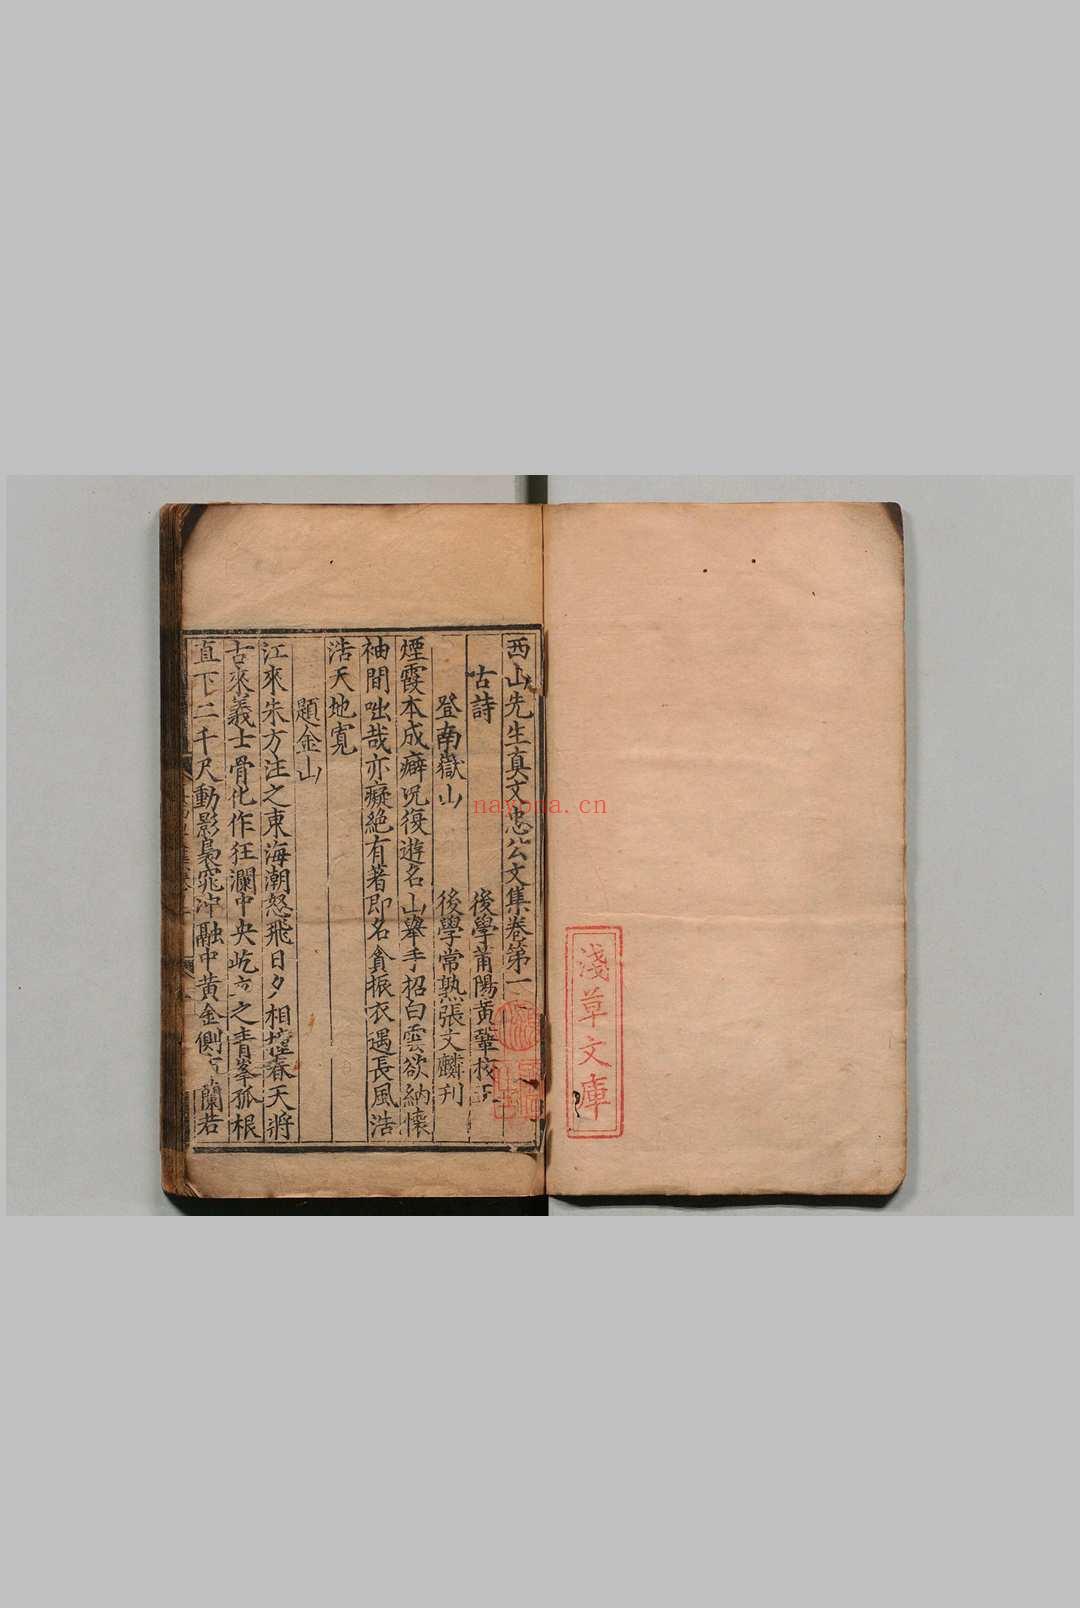 淺草文庫
西山先生真文忠公文集卷第一
古詩 後學莆陽黃鞏校正
登南嶽山 後學常熟張文麟刊
煙霞本成癖况復遊名山舉手招白雲欲納懷
袖間咄哉亦癡絕有著即名貪振衣遇長風浩
浩天地寬
題金山
江來朱方注之東海潮怒飛日夕相撞舂天將
古來義士骨化作狂瀾中央屹立之青峯孤根
直下二千尺動影裊窕沖融中黃金側布蘭若
nayona.cn